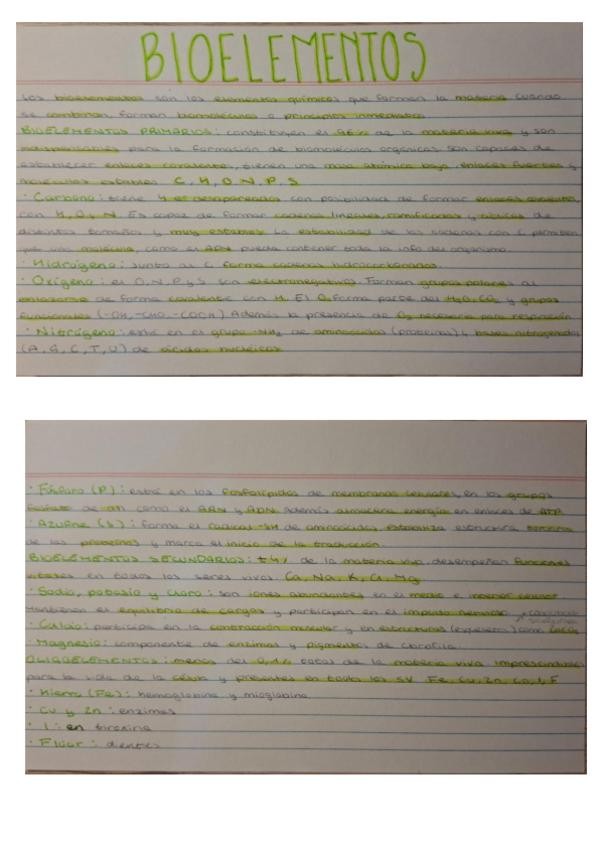 BIOELEMENTOS
Los bioelementos son los elementos químicos que forman la materia cuando
se combinan, forman biomoléculas o principios inmediatos
BIOELEMENTOS PRIMARIOS: constituyen el 96% de la materia viva y son
indispensables para la formación de biomoléculas orgánicas. son capaces de
establecer enlaces covalentes, tienen una masa atómica baja, enlaces fuertes y
moléculas estables C, H, O, N, P, S
· Carbono: tiene 4 e- desapareados con posibilidad de formar enlaces covalentes
con H, O y N. Es capaz de formar cadenas lineales, ramificadas y cíclicas de
distintos tamaños y muy estables. La estabilidad de las cadenas con C permiten
que una molécula, como el ADN pueda contener toda la info del organismo.
· Hidrógeno: Junto al C forma cadenas hidrocarbonadas.
· Oxígeno: el O, N, P y S son electronegativos. Forman grupos polares al
enlazarse de forma covalente con H. El O forma parte del H2O, CO2 y grupos
funcionales (-OH, -CHO, -COOH) Además la presencia de O2 necesaria para respiración
· Nitrógeno: está en el grupo -NH2 de aminoácidos (proteínas) y bases nitrogenadas
(A, G, C, T, U) de ácidos nucleicos
· Fósforo (P): está en los fosfolípidos de membranas celulares, en los grupos
fosfato de como el ARN y ADN. Además almacena energía en enlaces de ATP
· Azufre (S): forma el radical -SH de aminoácidos, estabiliza estructura terciaria
de las proteínas y marca el inicio de la traducción.
BIOELEMENTOS SECUNDARIOS: ±4% de la materia viva, desempeñan funciones
vitales en todos los seres vivos. Ca, Na, K, Cl, Mg
· Sodio, potasio y cloro: son iones abundantes en el medio e interior celular.
Mantienen el equilibrio de cargas y participan en el impulso nervioso
· Calcio: participa en la contracción muscular y en estructuras como CaCO3
· Magnesio: componente de enzimas y pigmentos de clorofila.
OLIGOELEMENTOS: menos del 0,1% total de la materia viva imprescindibles
para la vida de la célula y presentes en todos los SV. Fe, Cu, Zn, Co, I, F
· Hierro (Fe): hemoglobina y mioglobina
· Cu y Zn: enzimas
· I: en tiroxina
· Flúor: dientes